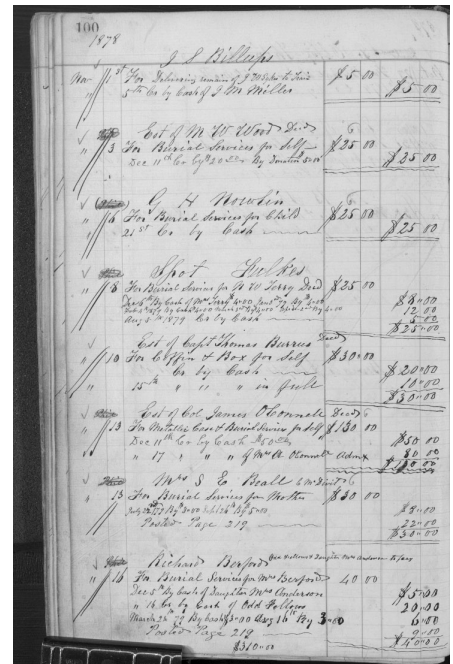 100
1878
J S Billups
Nov 1st For Delivering remains of J W to
5th Cr by Cash of J M Miller
$5 00
$5 00
Est of M W Wood Decd
" 3 For Burial Services for Self
$25 00
Dec 11th Cr By 20 00 By Donation 5 00
$25 00
G H Nowlin
" 6 For Burial Services for Child
$25 00
21st Cr by Cash
$25 00
Spot Fulkes
" 8 For Burial Services for W Terry Decd
$25 00
Dec 5th By Cash of Mrs Terry 4 00
$8 00
12 00
Aug 5th 1879 Cr by Cash
5 00
$25 00
Est of Capt Thomas Burrus Decd
" 10 For Coffin & Box for Self
$30 00
Cr by Cash
$20 00
15th " " " in full
10 00
$30 00
Est of Col James OConnell Decd
" 13 For Metallic Case & Burial Services for Self
$130 00
Dec 11th Cr By Cash $50 00
$50 00
" 17 " " " of Mrs A OConnell Admx
80 00
$130 00
Mrs S E Beall
" 13 For Burial Services for Mother
$30 00
July 22nd 79 By 3 00 Sept 26th By 5 00
$8 00
Posted Page 219
22 00
$30 00
Richard Berford
" 16 For Burial Services for Mrs Berford
40 00
Dec 5th By Cash of Daughter Mrs Anderson
$5 00
" 16 Cr by Cash of Odd Fellows
20 00
March 24th 79 By Cash $3 00 Aug 16th By 3 00
6 00
Posted Page 219
9 00
$40 00
$310 00